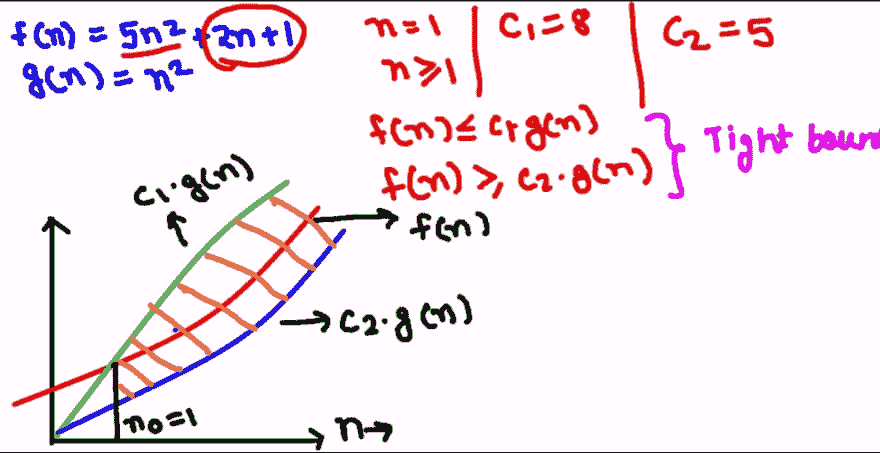 f(n) = 5n² + 2n+1
g(n) = n²
n=1 | C₁=8 | C₂=5
n≥1
f(n) ≤ C₁ g(n)
f(n) ≥, C₂·g(n)
Tight boun
C₁·g(n)
f(n)
C₂·g(n)
n₀=1
n→